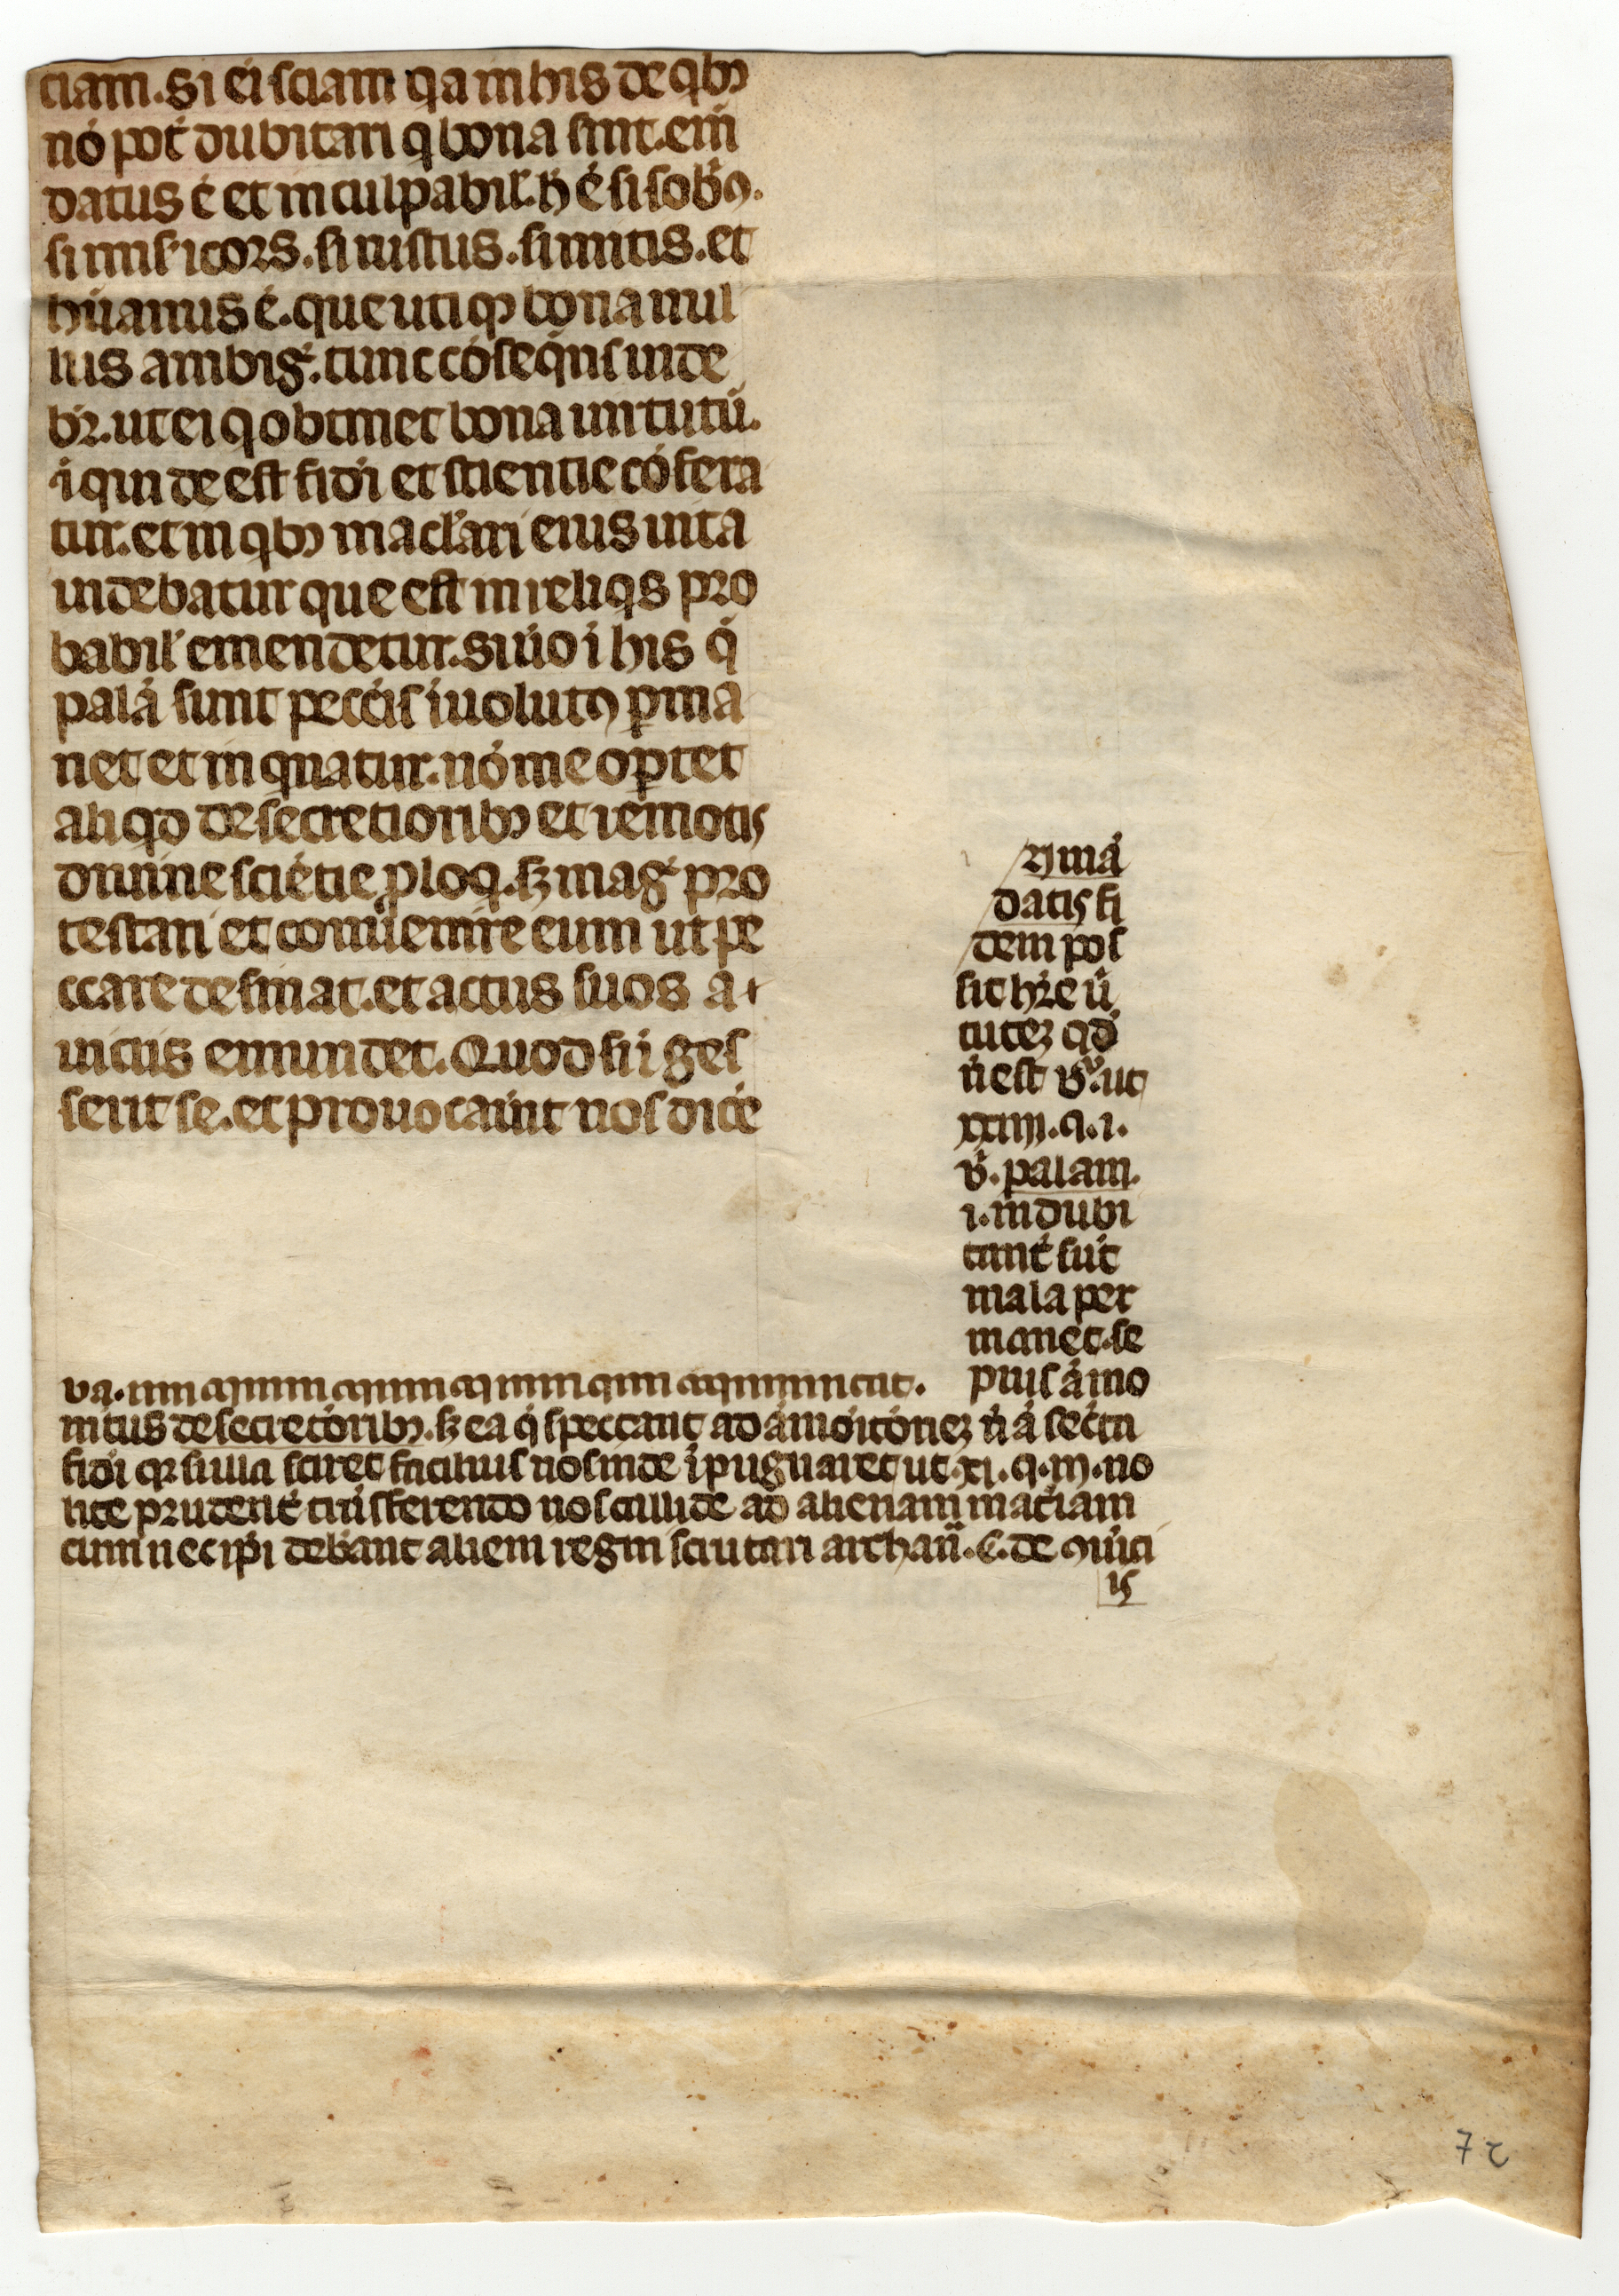 ciam. si ei sciam q̄a in his de qbꝫ
nō pot̄ dubitari q̄ bona sint. em̄
datus ē et inculpabil̄. h̄ ē si sobrꝰ.
si mis̄icors. si iustus. si mitis. et
hūanus ē. que utiqꝫ bona nul
lus ambiḡ. tunc cōseq̄ns uide
br̄. ut ei q̄ obtinet bona uirtutū.
i quide est fidi et scientie cōfera
tur. et in qbꝫ maclari eius uita
uidebatur que est in reliqs pro
babil̄ emendetur. si ūo i his q̄
palā sunt pecc̄is iuolutꝰ ꝑma
net et inqnatur. nō me oꝑtet
aliqd de secretioribꝫ et remotis
diuine sciētie ꝓloq̄. sꝫ maḡ pro
testari et conuenire eum ut pe
ccare desinat. et actus suos a
uiciis emundet. Quod si i ges
serit se. et prouocau̅it nos dic̄e
ꝝ mā
datis fi
dem pos
sit hr̄e ū
tutēꝫ qd̄
n̄ est ū. ut
xxiiii. q. i.
ū. palam.
i. indubi
tant̄ sūt
mala per
manet. se
prius āmo
nitus de secretōribꝫ. sꝫ ea q̄ spectant ad āmōitōnēꝫ n̄ ā sec̄ta
fidi qꝛ si illa sciret facilius nos inde ipugnaret ut. xi. q. iii. no
lite prudent̄ trāsferendo nos callide ad alienam mat̄iam
cum nec ip̄i debāut alieni regni scrutari archan̄. C. de
is
7 c